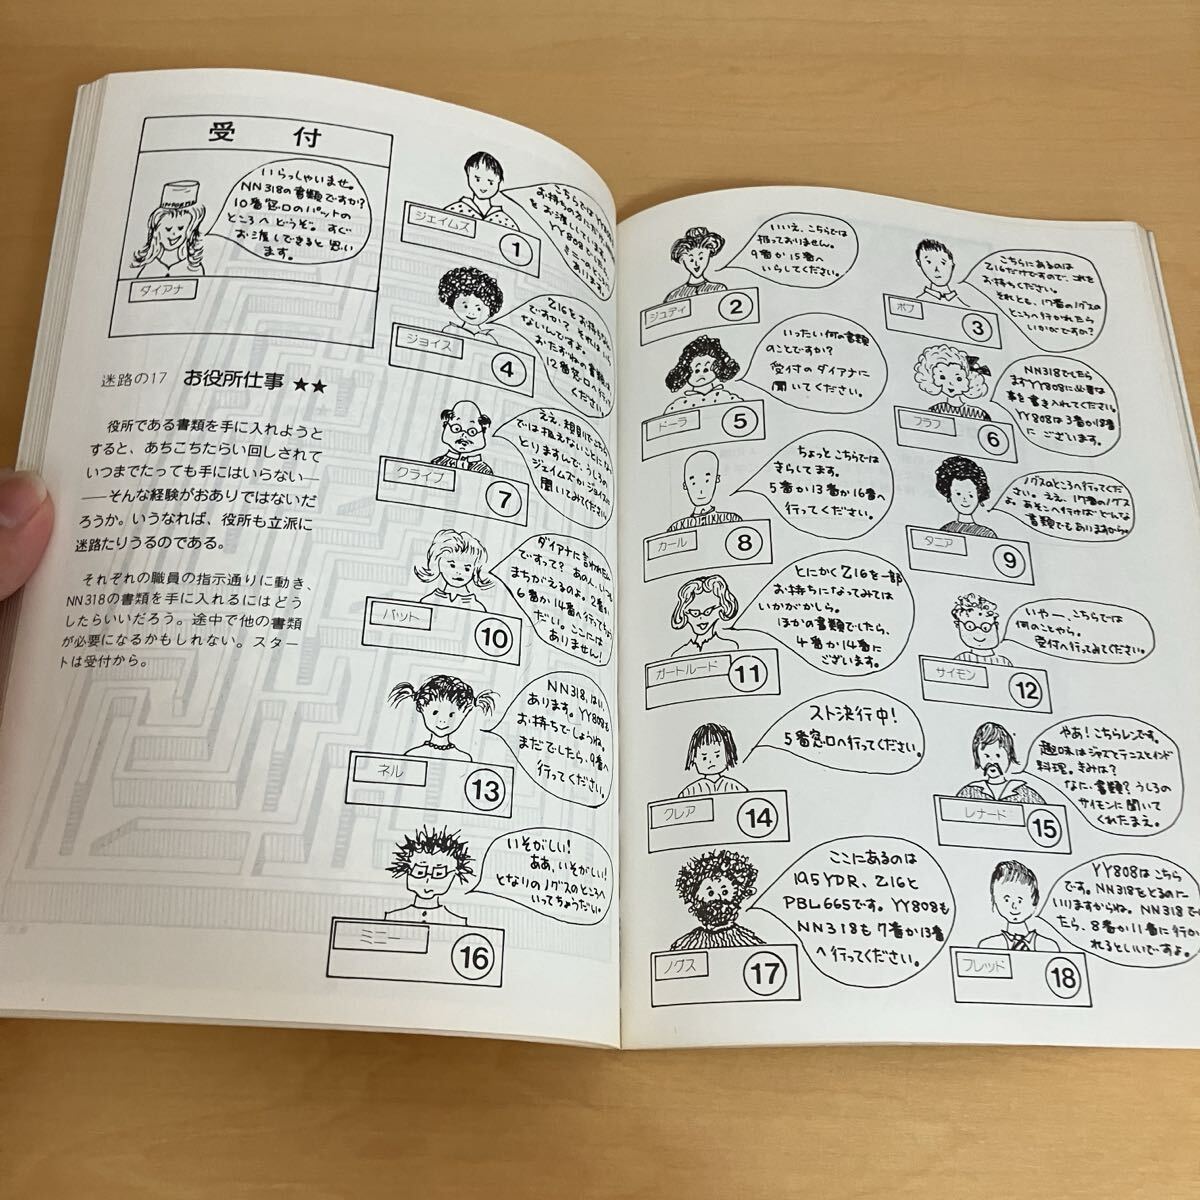 受 付
いらっしゃいませ。
NN318の書類ですか?
10番窓口のパットの
ところへどうぞ。すぐ
お渡しできると思い
ます。
ダイアナ
迷路の17 お役所仕事 ★★
役所である書類を手に入れようと
すると、あちこちたらい回しされて
いつまでたっても手にはいらない―
―そんな経験がおありではないだ
ろうか。いうなれば、役所も立派に
迷路たりうるのである。
それぞれの職員の指示通りに動き、
NN318の書類を手に入れるにはどう
したらいいだろう。途中で他の書類
が必要になるかもしれない。スター
トは受付から。
こちらでは
お持ちの方に
をお渡ししています
YY808
ジェイムズ
1
Z16をお持ち
ですか?
ないんですよ。
おたずねの書類は
12番窓口へ
ジョイス
4
ええ、規則で
では扱えないことに
とりますんで、うしろの
ジェイムズかジョイスに
聞いてみてください
クライブ
7
ダイアナに言われたん
ですって? あの人、いつも
まちがえるのよ。2番か
6番か14番へ行って
だい。ここには
ありません!
パット
10
NN318、はい、
あります。YY808も
お持ちでしょうね。
まだでしたら、9番へ
行ってください。
ネル
13
いそがしい!
ああ、いそがしい!
となりのノグスのところへ
いってちょうだい。
ミニー
16
いいえ、こちらでは
扱っておりません。
9番か15番へ
いらしてください。
ジュディ
2
こちらにあるのは
Z16だけですので、これを
お持ちください。
それとも、17番のノグスの
ところへ行かれたら
いかがですか?
ボブ
3
いったい何の書類
のことですか?
受付のダイアナに
聞いてください。
ドーラ
5
NN318でしたら
まずYY808に必要な
事を書き入れてください。
YY808は3番か18番
にございます。
フラブ
6
ちょっとこちらでは
きらしてます。
5番か13番か16番へ
行ってください。
カール
8
ノグスのところへ行ってくだ
さい。ええ、17番のノグス
よ。あそこへ行けばどんな
書類でもありますから。
タニア
9
とにかくZ16を一部
お持ちになってみては
いかがかしら。
ほかの書類でしたら、
4番か14番に
ございます。
ガートルード
11
いやー、こちらでは
何のことやら。
受付へ行ってみてください。
サイモン
12
スト決行中!
5番窓口へ行ってください。
クレア
14
やあ!こちらレンです。
趣味はジャズとテニスとインド
料理。きみは?
なに、書類?うしろの
サイモンに聞いて
くれたまえ。
レナード
15
ここにあるのは
195YDR、Z16と
PBL665です。YY808も
NN318も7番か13番
へ行ってください。
ノグス
17
YY808はこちら
です。NN318をとるのに
いりますからね。NN318で
たら、8番か11番に行か
れるといいですよ。
フレッド
18